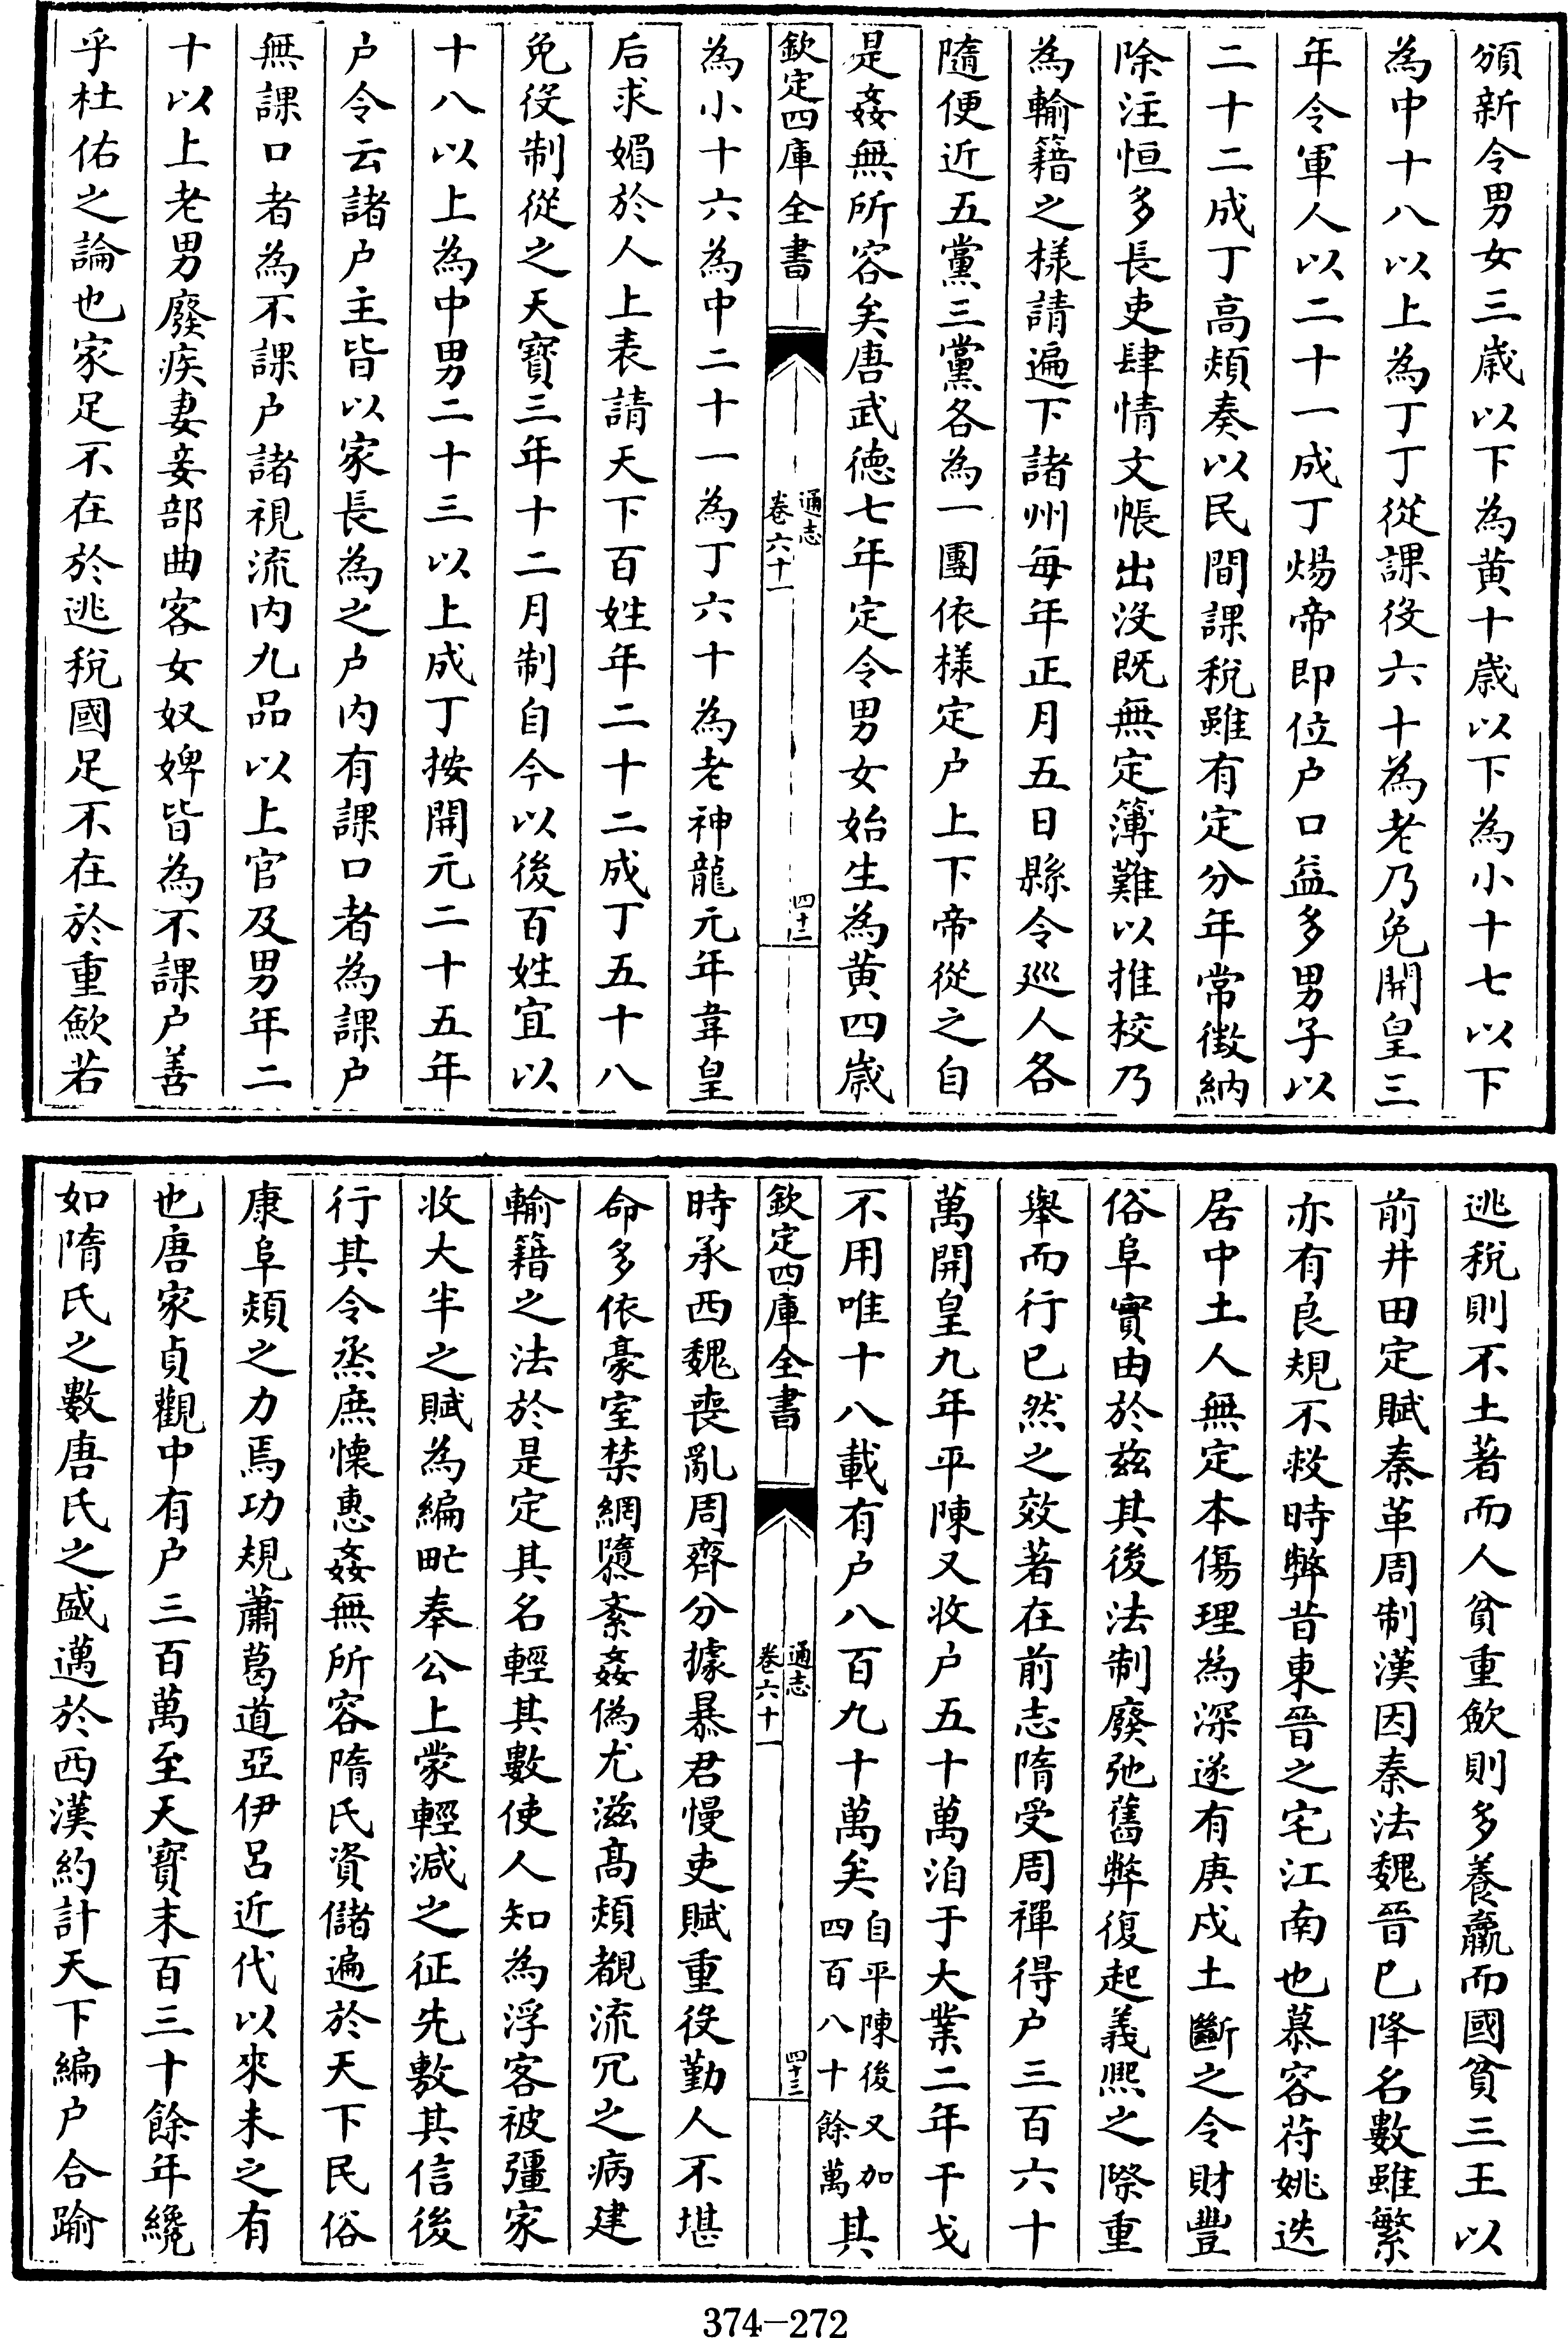 頒新令男女三歳以下為黄十歳以下為小十七以下
為中十八以上為丁丁從課役六十為老乃免開皇三
年令軍人以二十一成丁煬帝即位户口益多男子以
二十二成丁高熲奏以民間課税雖有定分年常徴納
除注恒多長吏肆情文帳出沒既無定簿難以推校乃
為輸籍之様請遍下諸州每年正月五日縣令巡人各
隨便近五黨三黨各為一團依様定户上下帝從之自
是姦無所容矣唐武德七年定令男女始生為黄四歳
欽定四庫全書
通志
卷六十一
四十二
為小十六為中二十一為丁六十為老神龍元年韋皇
后求媚於人上表請天下百姓年二十二成丁五十八
免役制從之天寳三年十二月制自今以後百姓宜以
十八以上為中男二十三以上成丁按開元二十五年
户令云諸户主皆以家長為之户内有課口者為課户
無課口者為不課户諸視流内九品以上官及男年二
十以上老男廢疾妻妾部曲客女奴婢皆為不課户善
乎杜佑之論也家足不在於逃税國足不在於重歛若
逃税則不土著而人貧重歛則多養羸而國貧三王以
前井田定賦秦革周制漢因秦法魏晉已降名數雖繁
亦有良規不救時弊昔東晉之宅江南也慕容苻姚迭
居中土人無定本傷理為深遂有庚戍土斷之令財豐
俗阜實由於兹其後法制廢弛舊弊復起義熙之際重
舉而行已然之效著在前志隋受周禪得户三百六十
萬開皇九年平陳又收户五十萬洎于大業二年干戈
不用唯十八載有户八百九十萬矣自平陳後又加四百八十餘萬其
欽定四庫全書
通志
卷六十一
四十三
時承西魏喪亂周齊分據暴君慢吏賦重役勤人不堪
命多依豪室禁網隳紊姦偽尤滋高熲覩流冗之病建
輸籍之法於是定其名輕其數使人知為浮客被彊家
收大半之賦為編甿奉公上蒙輕減之征先敷其信後
行其令烝庶懷惠姦無所容隋氏資儲遍於天下民俗
康阜熲之力焉功規蕭葛道亞伊呂近代以來未之有
也唐家貞觀中有户三百萬至天寳末百三十餘年纔
如隋氏之數唐氏之盛邁於西漢約計天下編户合踰
374-272